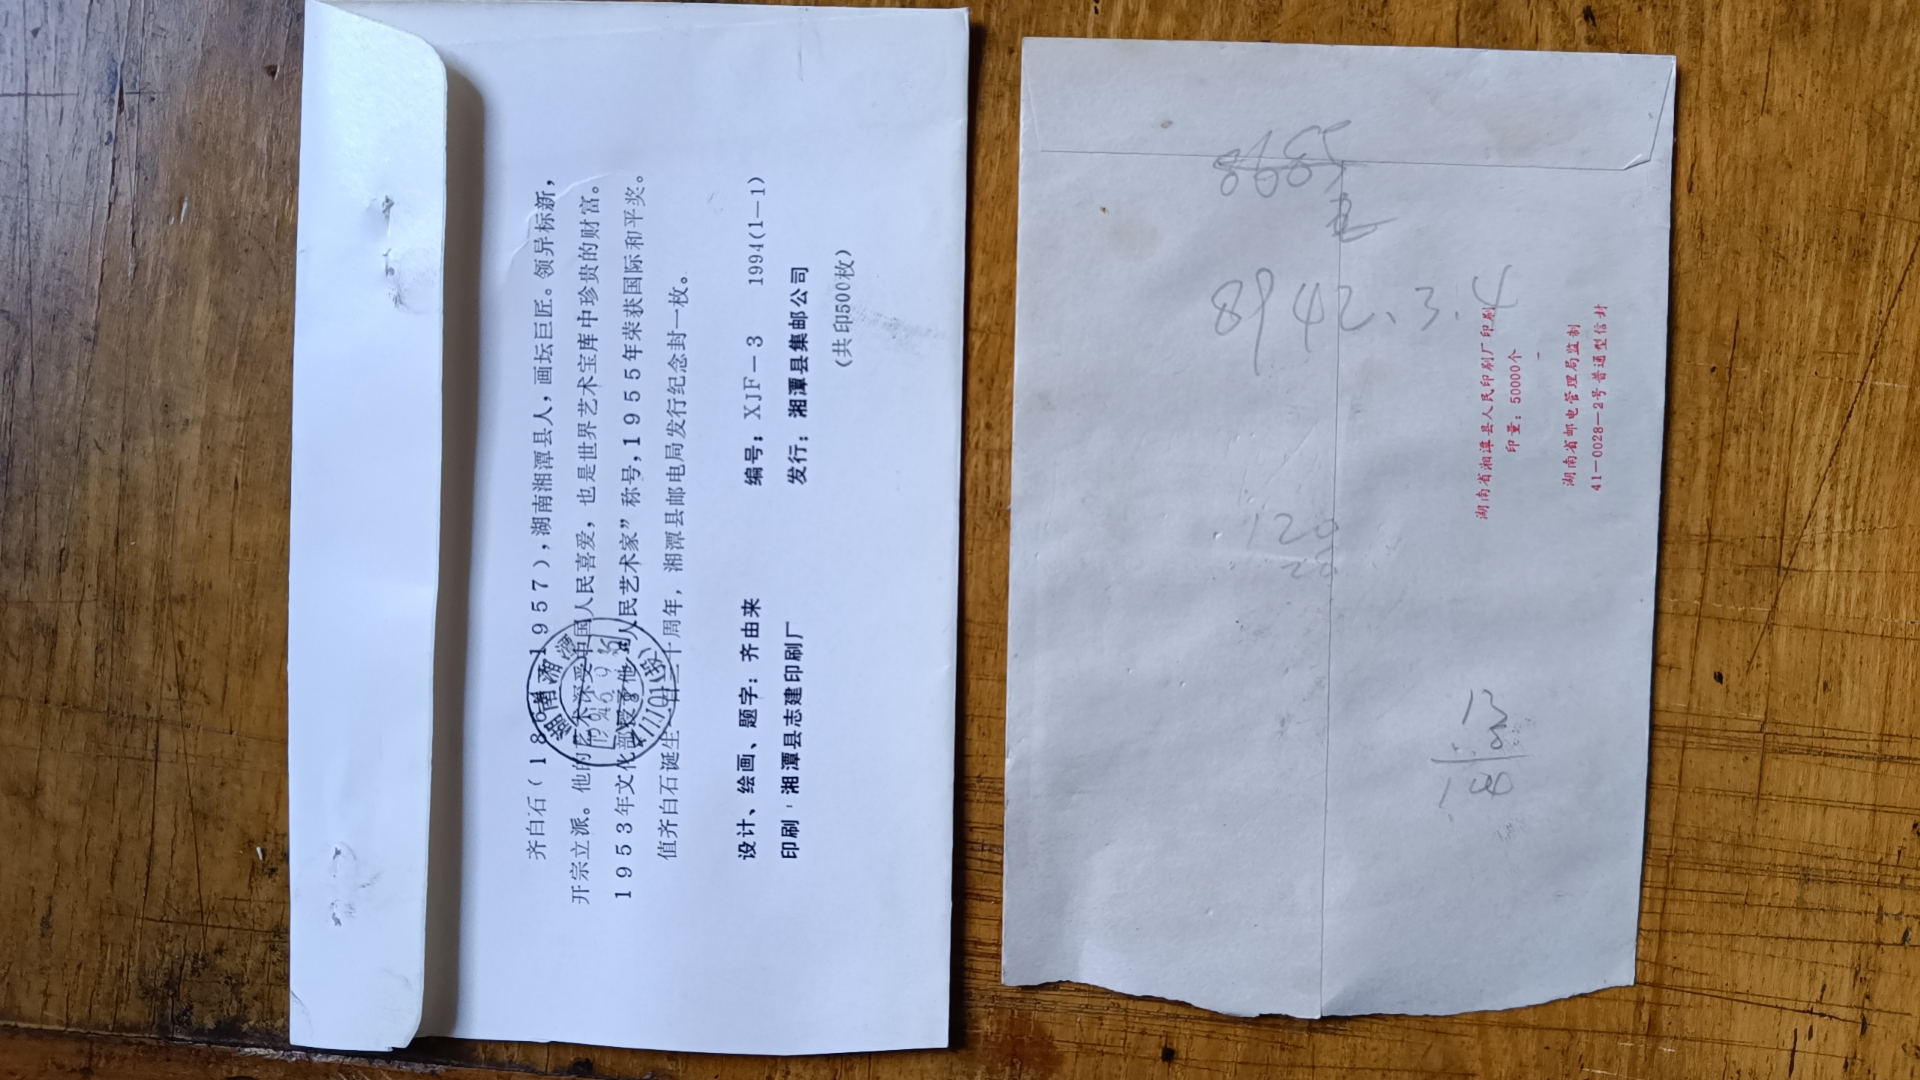 齐白石(18 1957),湖南湘潭县人,画坛巨匠。领异标新,
开宗立派。他的艺术深受中国人民喜爱,也是世界艺术宝库中珍贵的财富。
1953年文化部授予他“人民艺术家”称号,1955年荣获国际和平奖。
值齐白石诞生一百三十周年,湘潭县邮电局发行纪念封一枚。
设计、绘画、题字:齐由来 编号:XJF-3 1994(1-1)
印刷:湘潭县志建印刷厂 发行:湘潭县集邮公司
(共印500枚)
湖南湘潭
8942.3.4
120
20
湖南省湘潭县人民印刷厂印刷
印量:50000个
湖南省邮电管理局监制
41-0028-2号普通型信封